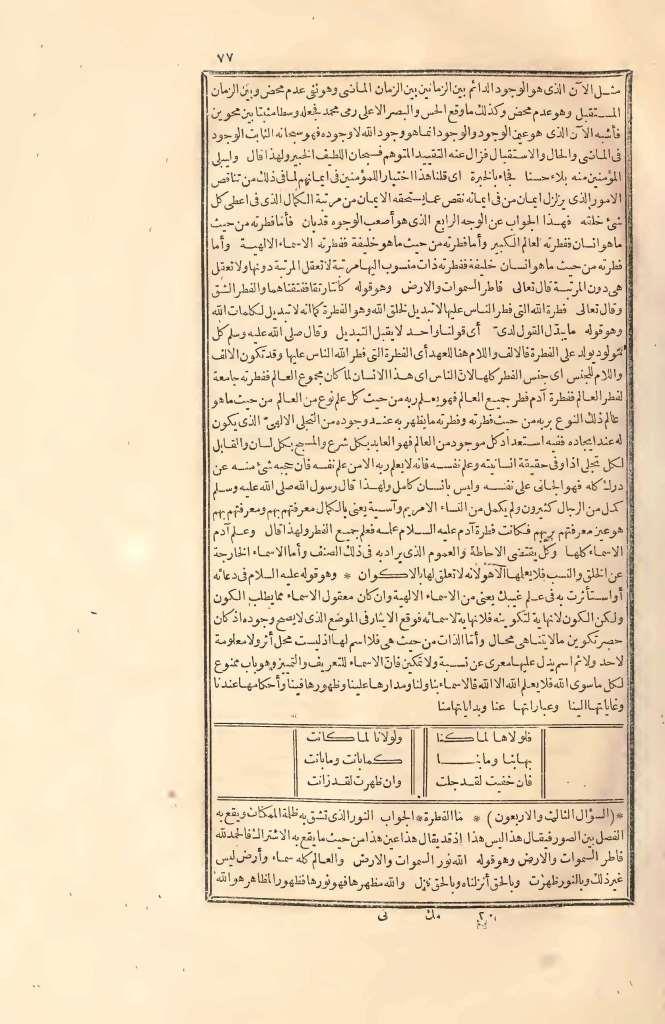 ٧٧
مثل الآن الذى هو الوجود الدائم بين الزمانين بين الزمان الماضى وهو نفى عدم محض وبين الزمان
المستقبل وهو عدم محض وكذلك ما وقع الحس والبصر الا على رمى محمد فجعله وسطا مثبتا بين محوين
فأشبه الآن الذى هو عين الوجود والوجود انما هو وجود الله لا وجوده فهو سبحانه الثابت الوجود
فى الماضى والحال والاستقبال فزال عنه التقييد المتوهم فسبحان اللطيف الخبير ولهذا قال وليبلى
المؤمنين منه بلاء حسنا فجاء بالخبرة اى قلنا هذا اختبارا للمؤمنين فى ايمانهم لما فى ذلك من تناقض
الامور الذى يزلزل ايمان من فى ايمانه نقص عما يستحقه الايمان من مرتبة الكمال الذى فى اعطى كل
شئ خلقه فهذا الجواب عن الوجه الرابع الذى هو أصعب الوجوه قد بان فأما فطرته من حيث
ما هو انسان ففطرته العالم الكبير وأما فطرته من حيث ما هو خليفة ففطرته الاسماء الالهية وأما
فطرته من حيث ما هو انسان خليفة ففطرته ذات منسوب اليها مرتبة لا تعقل المرتبة دونها ولا تعقل
هى دون المرتبة قال تعالى فاطر السموات والارض وهو قوله كانتا رتقا ففتقناهما والفطر الشق
وقال تعالى فطرة الله التى فطر الناس عليها لا تبديل لخلق الله وهو الفطرة كما انه لا تبديل لكلمات الله
وهو قوله ما يبدل القول لدى أى قولنا واحد لا يقبل التبديل وقال صلى الله عليه وسلم كل
مولود يولد على الفطرة فالالف واللام هنا للعهد أى الفطرة التى فطر الله الناس عليها وقد تكون الالف
واللام للجنس اى جنس الفطر كلها لان الناس اى هذا الانسان لما كان مجموع العالم ففطرته جامعة
لفطر العالم ففطرة آدم فطر جميع العالم فهو يعلم ربه من حيث كل علم نوع من العالم من حيث ما هو
عالم ذلك النوع بربه من حيث فطرته وفطرته ما يظهر به عند وجوده من التجلى الالهى الذى يكون
له عند ايجاده ففيه استعداد كل موجود من العالم فهو العابد بكل شرع والمسبح بكل لسان والقابل
لكل تجلى اذا وفى حقيقة انسانيته وعلم نفسه فانه لا يعلم ربه الا من علم نفسه فان حجبه شئ منه عن
درك كله فهو الجانى على نفسه وليس بانسان كامل ولهذا قال رسول الله صلى الله عليه وسلم
كمل من الرجال كثيرون ولم يكمل من النساء الا مريم وآسية يعنى بالكمال معرفتهم بهم ومعرفتهم بهم
هو عين معرفتهم بربهم فكانت فطرة آدم عليه السلام علمه فعلم جميع الفطر ولهذا قال وعلم آدم
الاسماء كلها وكل يقتضى الاحاطة والعموم الذى يراد به فى ذلك الصنف وأما الاسماء الخارجة
عن الخلق والنسب فلا يعلمها الا هو لانه لا تعلق لها بالاكوان * وهو قوله عليه السلام فى دعائه
أو استأثرت به فى علم غيبك يعنى من الاسماء الالهية وان كان معقول الاسماء مما يطلب الكون
ولكن الكون لا نهاية لتكوينه فلا نهاية لاسمائه فوقع الايثار فى الموضع الذى لا يصح وجوده اذ كان
حصر تكوين ما لا يتناهى محال وأما الذات من حيث هى فلا اسم لها اذ ليست محل أثر ولا معلومة
لاحد ولا ثم اسم يدل عليها معرى عن نسبة ولا تمكين فان الاسماء للتعريف والتمييز وهو باب ممنوع
لكل ما سوى الله فلا يعلم الله الا الله فالاسماء بنا ولنا ومدارها علينا وظهورها فينا وأحكامها عندنا
وغاياتها الينا وعباراتها عنا وبداياتها منا
فلولاها لما كنا ولولانا لما كانت
بها بنا وما بنا كما بانت وما بانت
فان خفيت لقد جلت وان ظهرت لقد زانت
*(السؤال الثالث والاربعون)* ما الفطرة * الجواب النور الذى تشق به ظلمة الممكنات ويقع به
الفصل بين الصور فيقال هذا ليس هذا اذ قد يقال هذا عين هذا من حيث ما يقع به الاشتراك فالحمد لله
فاطر السموات والارض وهو قوله الله نور السموات والارض والعالم كله سماء وأرض ليس
غير ذلك وبالنور ظهرت وبالحق أنزلناه وبالحق نزل والله مظهرها فهو نورها فظهور المظاهر هو الله
٢٠ مك نى